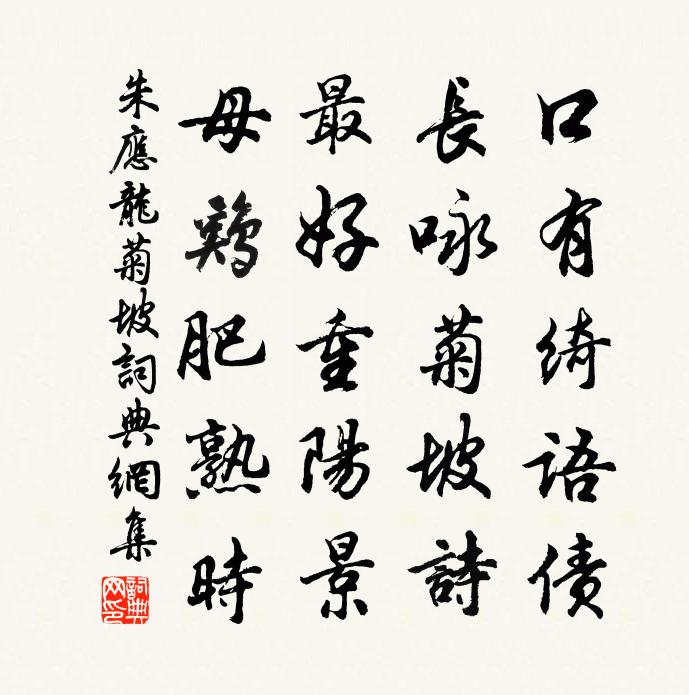 口有綺語債
長咏菊坡詩
最好重陽景
母鷄肥熟時
朱應龍菊坡詞典網集
詞典網印